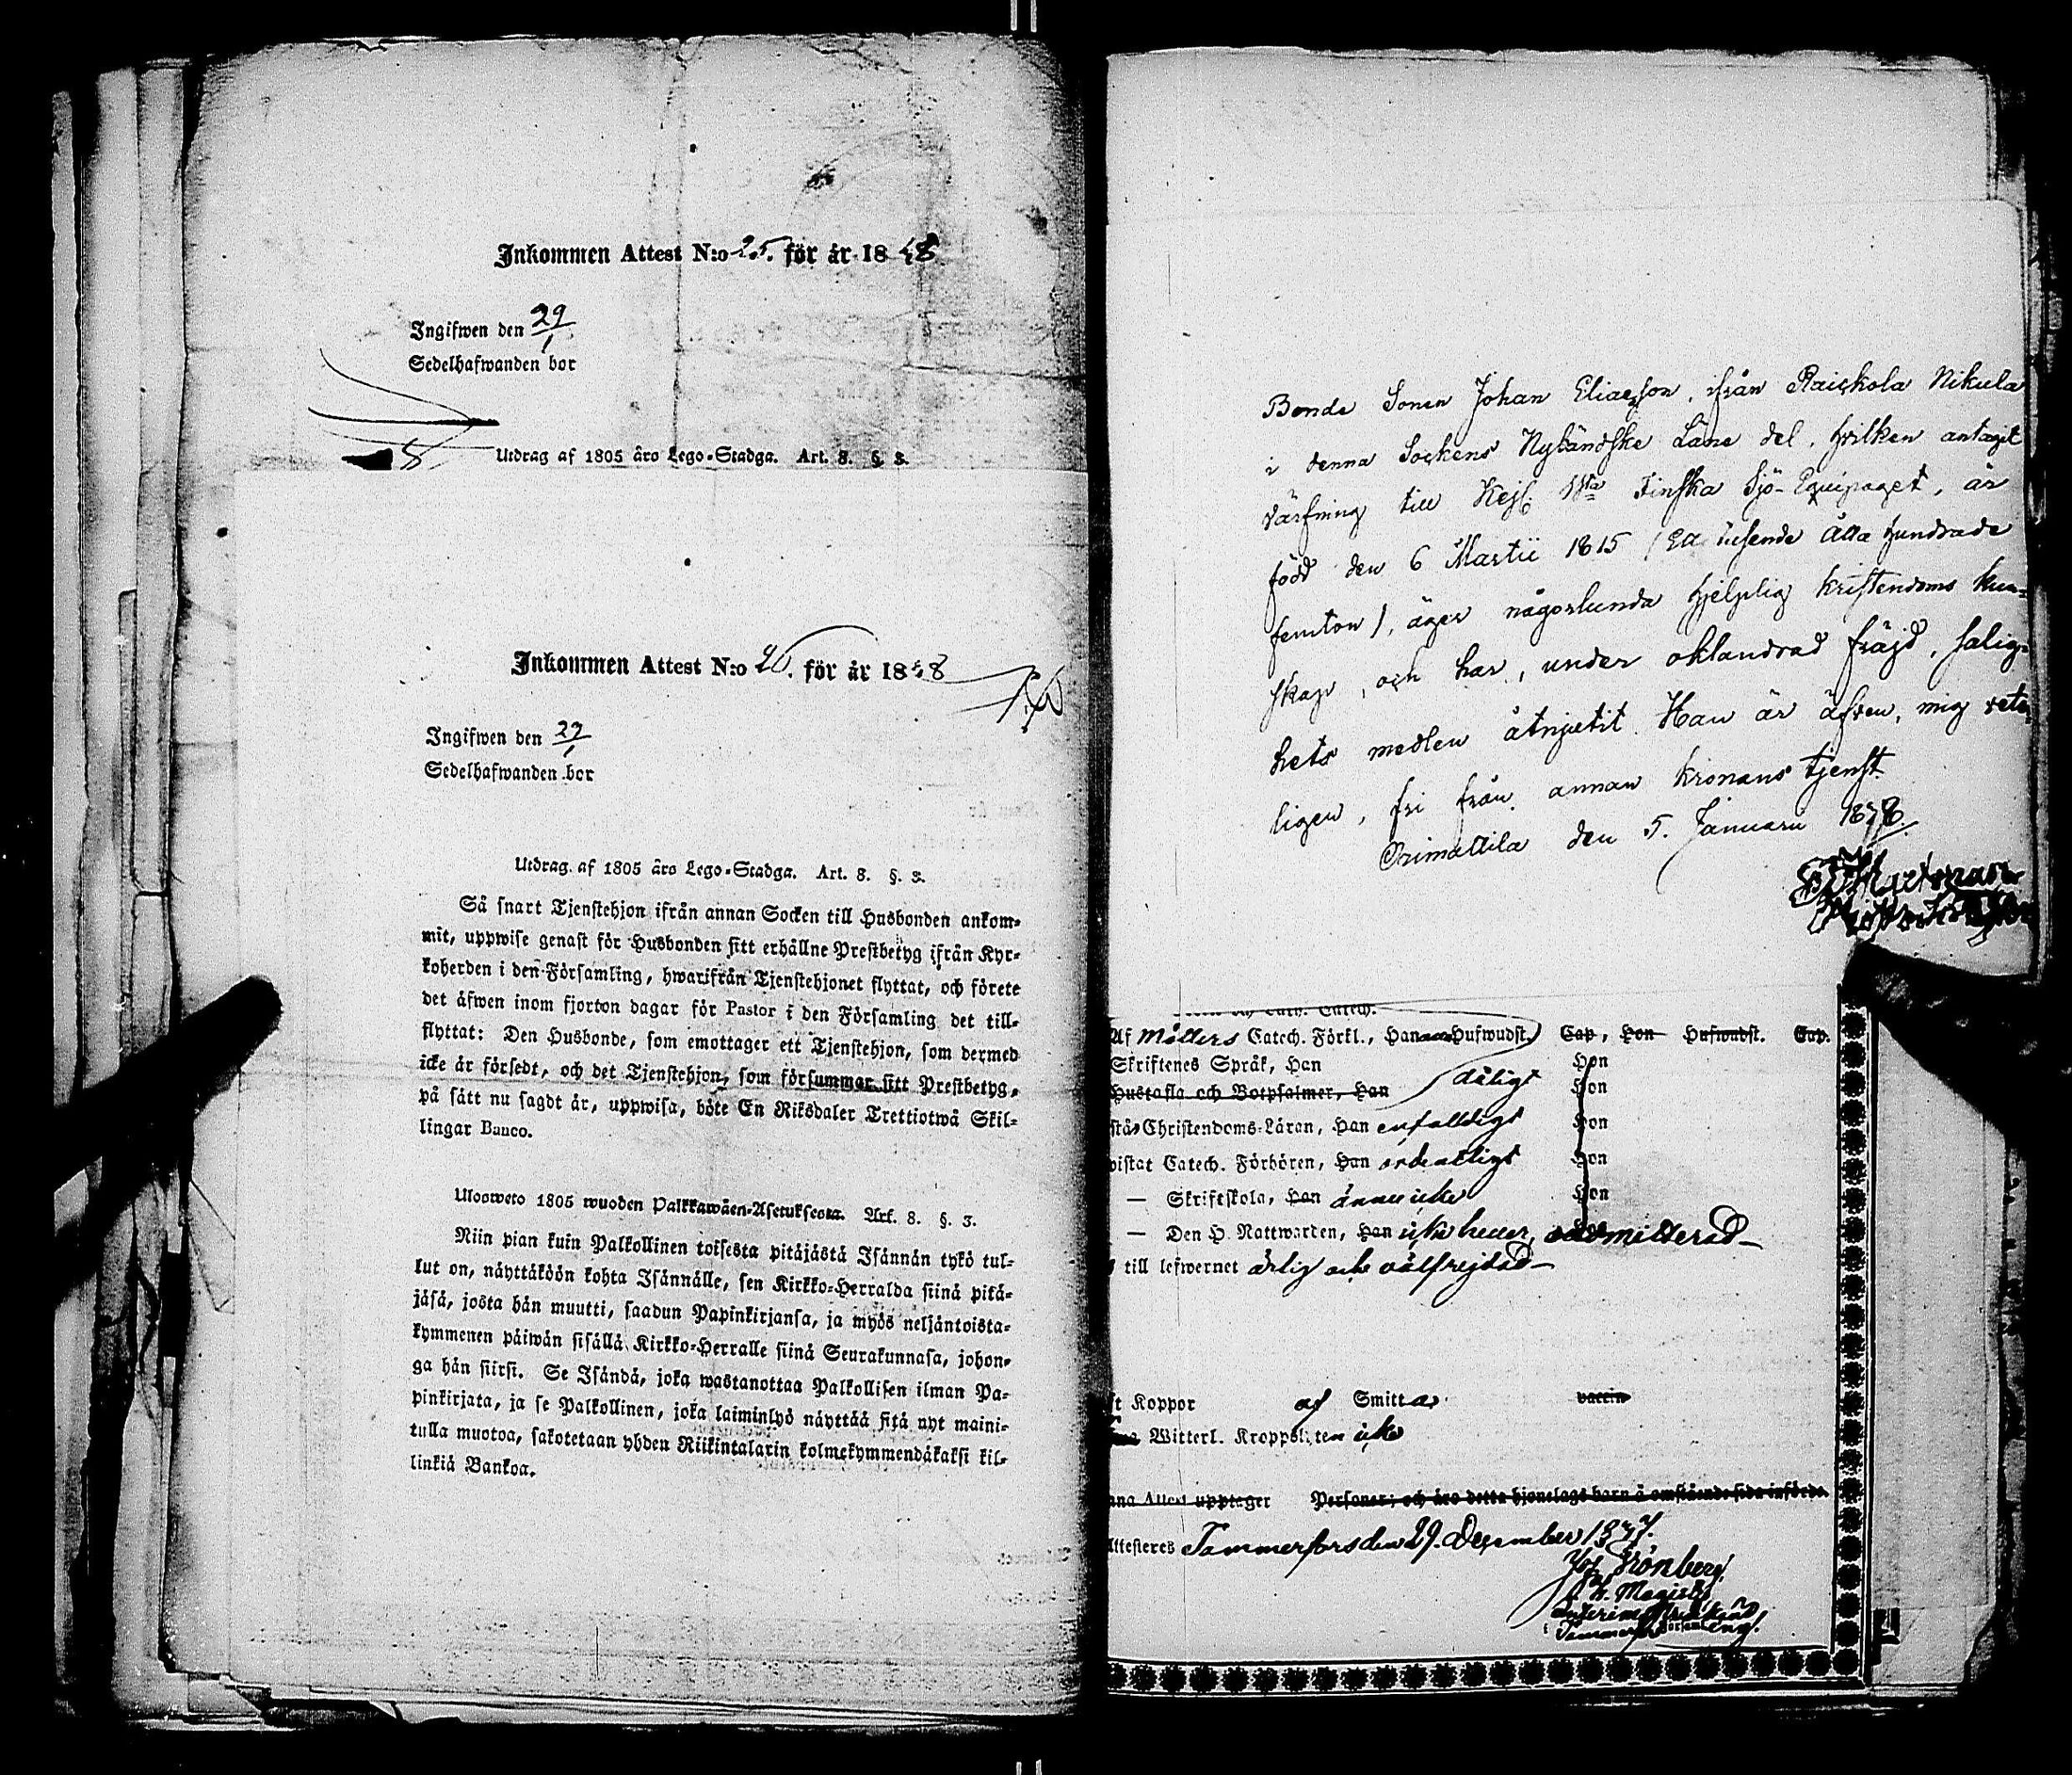 Inkommen Attest N:o 25. för år 1848
Ingifwen den 29/1
Sedelhafwanden bor
Utdrag af 1805 års Lego-Stadga. Art. 8. §. 3.
Inkommen Attest N:o 26. för år 1848
Ingifwen den 29/1
Sedelhafwanden bor
Utdrag af 1805 års Lego-Stadga. Art. 8. §. 3.
Så snart Tjenstehjon ifrån annan Socken till Husbonden ankom-
mit, uppwise genast för Husbonden sitt erhållne Prestbetyg ifrån Kyr-
koherden i den Församling, hwarifrån Tjenstehjonet flyttat, och förete
det äfwen inom fjorton dagar för Pastor i den Församling det till-
flyttat: Den Husbonde, som emottager ett Tjenstehjon, som dermed
icke är försedt, och det Tjenstehjon, som försummar sitt Prestbetyg,
på sätt nu sagdt är, uppwisa, böte En Riksdaler Trettiotwå Skil-
lingar Banco.
Ulosweto 1805 wuoden Palkkawäen-Asetuksesta. Art. 8. §. 3.
Niin pian kuin Palkollinen toisesta pitäjästä Isännän tykö tul-
lut on, näyttäköön kohta Isännälle, sen Kirkko-Herralda siinä pitä-
jäsä, josta hän muutti, saadun Papinkirjansa, ja myös neljäntoista-
kymmenen päiwän sisällä Kirkko-Herralle siinä Seurakunnasa, johon-
ga hän siirsi. Se Isändä, joka wastanottaa Palkollisen ilman Pa-
pinkirjata, ja se Palkollinen, joka laiminlyö näyttää sitä nyt maini-
tulla muotoa, sakotetaan yhden Riikintalarin kolmekymmendäkaksi kil-
linkiä Bankoa.
Bonde Sonen Johan Eliaesson, ifrån Raiskola Nikula
i denna Sockens Nyländske Läns del, hvilken antagit
värfning till Kejs. 1sta Finska Sjö-Equipaget, är
född den 6 Martii 1815 (Ett tusende Åtta hundrade
femton), äger någorlunda hjelplig kristendoms kun-
skap, och har, under oklandrad fräjd, salig-
hets medlen åtnjutit. Han är äfven, mig veter-
ligen, fri från annan kronans tjenst.
Orimattila den 5. Januarii 1848.
Af Möllers Catech. Förkl., Han Hufwudst. Cap, Hon Hufwudst. Cap.
Skriftenes Språk, Han Hon
Hustafla och Botpsalmer, Han dåligt Hon
Christendoms-Läran, Han enfalldigt Hon
wistat Catech. Förhören, Han ordentligt Hon
— Skriftskola, Han ännu icke Hon
— Den H. Nattwarden, Han icke heller admitterad
till lefwernet ärlig och välfrejdad
Koppor af Smitta vaccin
Witterl. Kroppslyten icke
Attest upptager Personer; och äro detta hjonelags barn å omstående sida införde.
Attesteres Tammerfors den 29. December 1847.
Grönberg.
Ph. Magister
Tammerfors Församling.